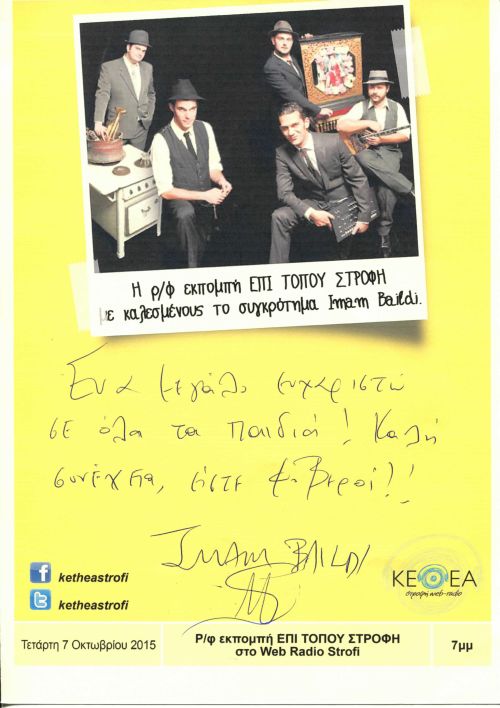 Η ρ/φ εκπομπή ΕΠΙ ΤΟΠΟΥ ΣΤΡΟΦΗ
με καλεσμένους το συγκρότημα Imam Baildi.
Ένα μεγάλο ευχαριστώ
σε όλα τα παιδιά! Καλή
συνέχεια, είστε φοβεροί!!
IMAM BAILDI
ketheastrofi
ketheastrofi
ΚΕΘΕΑ
στροφή web-radio
Τετάρτη 7 Οκτωβρίου 2015
Ρ/φ εκπομπή ΕΠΙ ΤΟΠΟΥ ΣΤΡΟΦΗ
στο Web Radio Strofi
7μμ